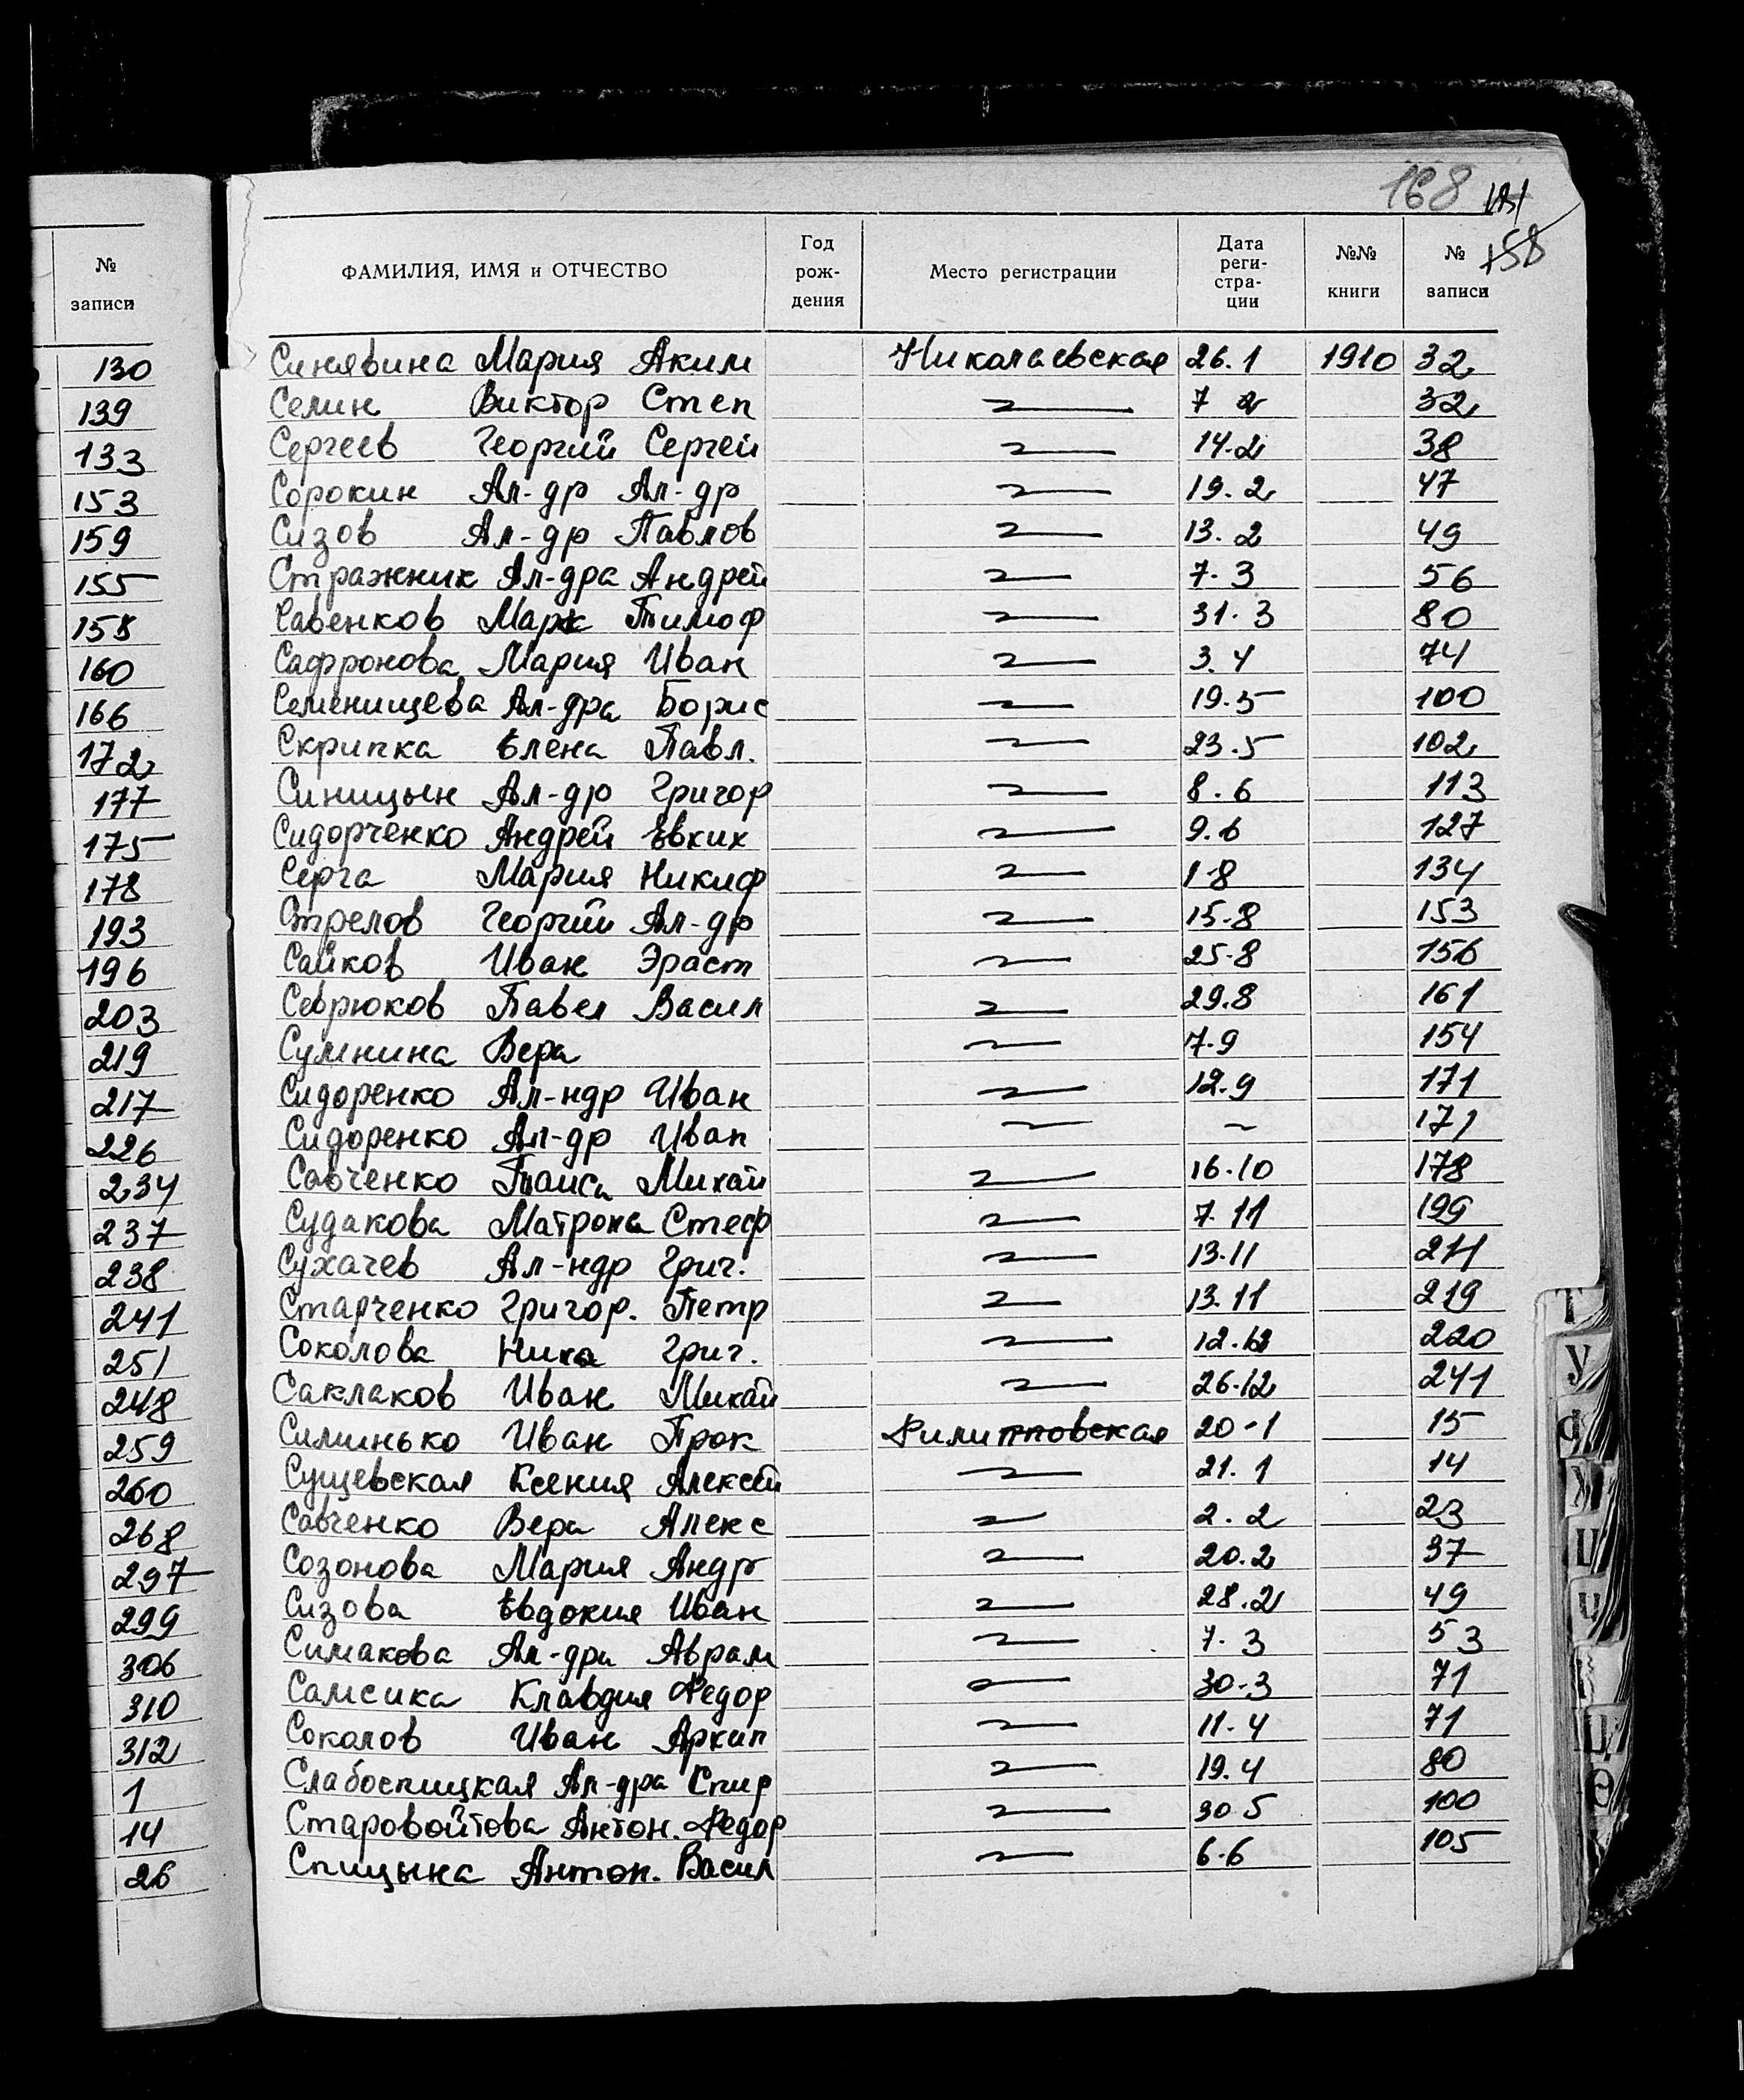 168
158
№
записи
130
139
133
153
159
155
158
160
166
172
177
175
178
193
196
203
219
217
226
234
237
238
241
251
248
259
260
268
297
299
306
310
312
1
14
26
ФАМИЛИЯ, ИМЯ и ОТЧЕСТВО Год рож- дения Место регистрации Дата реги- стра- ции №№ книги № записи
Синявина Мария Аким Николаевская 26.1 1910 32
Селин Виктор Степ 7 2 32
Сергеев Георгий Сергей 14.2 38
Сорокин Ал-др Ал-др 19.2 47
Сизов Ал-др Павлов 13.2 49
Стражник Ал-дра Андрей 7.3 56
Савенков Марк Тимоф 31.3 80
Сафронова Мария Иван 3.4 74
Семенищева Ал-дра Борис 19.5 100
Скрипка Елена Павл. 23.5 102
Синицын Ал-др Григор 8.6 113
Сидорченко Андрей Евких 9.6 127
Серга Мария Никиф 1 8 134
Стрелов Георгий Ал-др 15.8 153
Сайков Иван Эраст 25.8 156
Севрюков Павел Васил 29.8 161
Сумнина Вера 7.9 154
Сидоренко Ал-ндр Иван 12.9 171
Сидоренко Ал-др Иван ~ 171
Савченко Таиса Михай 16.10 178
Судакова Матрона Стеф 7.11 199
Сухачев Ал-ндр Григ. 13.11 211
Старченко Григор. Петр 13.11 219
Соколова Нина Григ. 12.12 220
Саклаков Иван Михай 26.12 241
Силинько Иван Прок Филипповская 20-1 15
Сущевская Ксения Алексей 21.1 14
Савченко Вера Алекс 2.2 23
Созонова Мария Андр 20.2 37
Сизова Евдокия Иван 28.2 49
Симакова Ал-дри Аврам 7.3 53
Самсика Клавдия Федор 30.3 71
Соколов Иван Архип 11.4 71
Слабоспицкая Ал-дра Спир 19.4 80
Старовойтова Антон. Федор 30 5 100
Спицына Антон. Васил 6.6 105
Т
У
Ф
Х
Ц
Ч
Щ
Ө